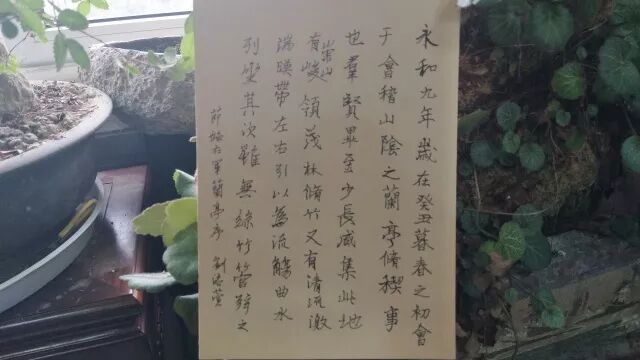 永和九年歲在癸丑暮春之初會
于會稽山陰之蘭亭脩稧事
也羣賢畢至少長咸集此地
有崇山峻領茂林脩竹又有清流激
湍暎帶左右引以為流觴曲水
列坐其次雖無絲竹管弦之
節臨右軍蘭亭序 劉